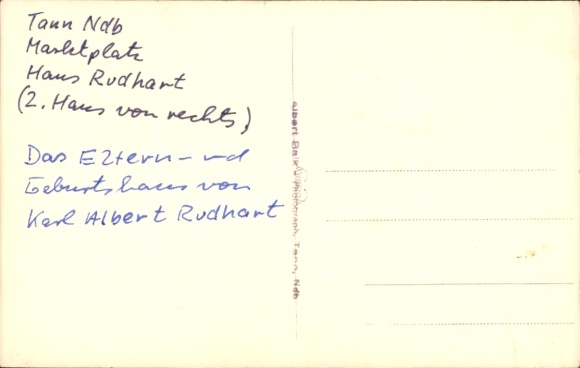 Tann Ndb
Marktplatz
Haus Rudhart
(2. Haus von rechts)
Das Eltern- und
Geburtshaus von
Karl Albert Rudhart
Albert Photograph, Tann, Ndb